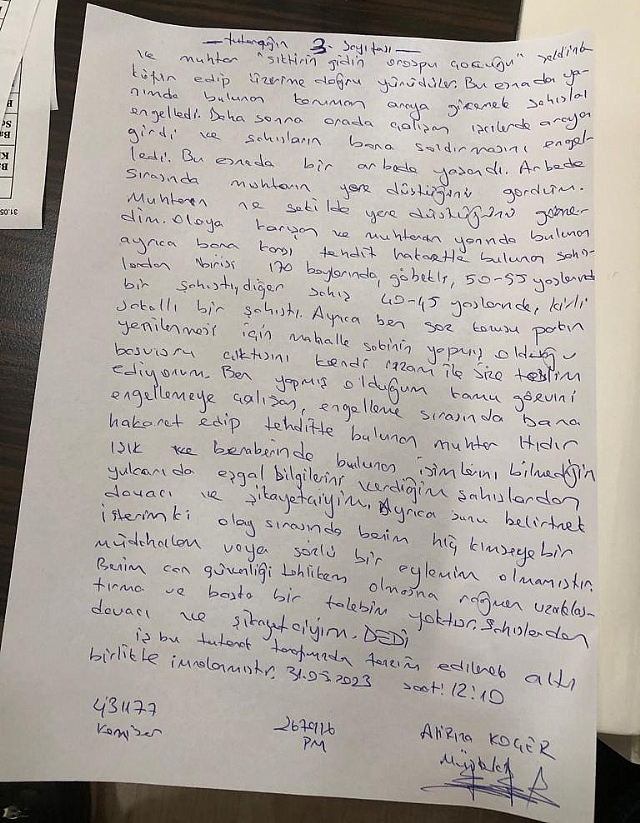 — tutanağın 3. sayfası —
ve muhtar "siktirin gidin orospu çocuğu" şeklinde
küfür edip üzerime doğru yürüdüler. Bu esnada ya-
nımda bulunan korumam araya girerek şahısları
engelledi. Daha sonra orada çalışan işçilerde araya
girdi ve şahısların bana saldırmasını engel-
ledi. Bu esnada bir arbede yaşandı. Arbede
sırasında muhtarın yere düştüğünü gördüm.
Muhtarın ne şekilde yere düştüğünü görme-
dim. Olaya karışan ve muhtarın yanında bulunan
ayrıca bana karşı tehdit hakarette bulunan şahıs-
lardan birisi 170 boylarında, göbekli, 50-55 yaşlarında
bir şahıstı, diğer şahıs 40-45 yaşlarında, kirli
sakallı bir şahıstı. Ayrıca ben söz konusu parkın
yenilenmesi için mahalle sakinin yapmış olduğu
başvuru çıktısını kendi rızam ile size teslim
ediyorum. Ben yapmış olduğum kamu görevini
engellemeye çalışan, engelleme sırasında bana
hakaret edip tehditte bulunan muhtar Hıdır
Işık ve beraberinde bulunan isimlerini bilmediğim
yukarıda eşgal bilgilerini verdiğim şahıslardan
davacı ve şikayetçiyim. Ayrıca şunu belirtmek
isterimki olay sırasında benim hiç kimseye bir
müdahalem veya sözlü bir eylemim olmamıştır.
Benim can güvenliği tehlikem olmasına rağmen uzaklaş-
tırma ve başka bir talebim yoktur. Şahıslardan
davacı ve şikayetçiyim. DEDİ
iş bu tutanak tarafımızda tanzim edilerek altı
birlikte imzalanmıştır. 31.05.2023 saat: 12:10
431177
Komiser
PM
Alirıza KOÇER
Müşteki
31.05